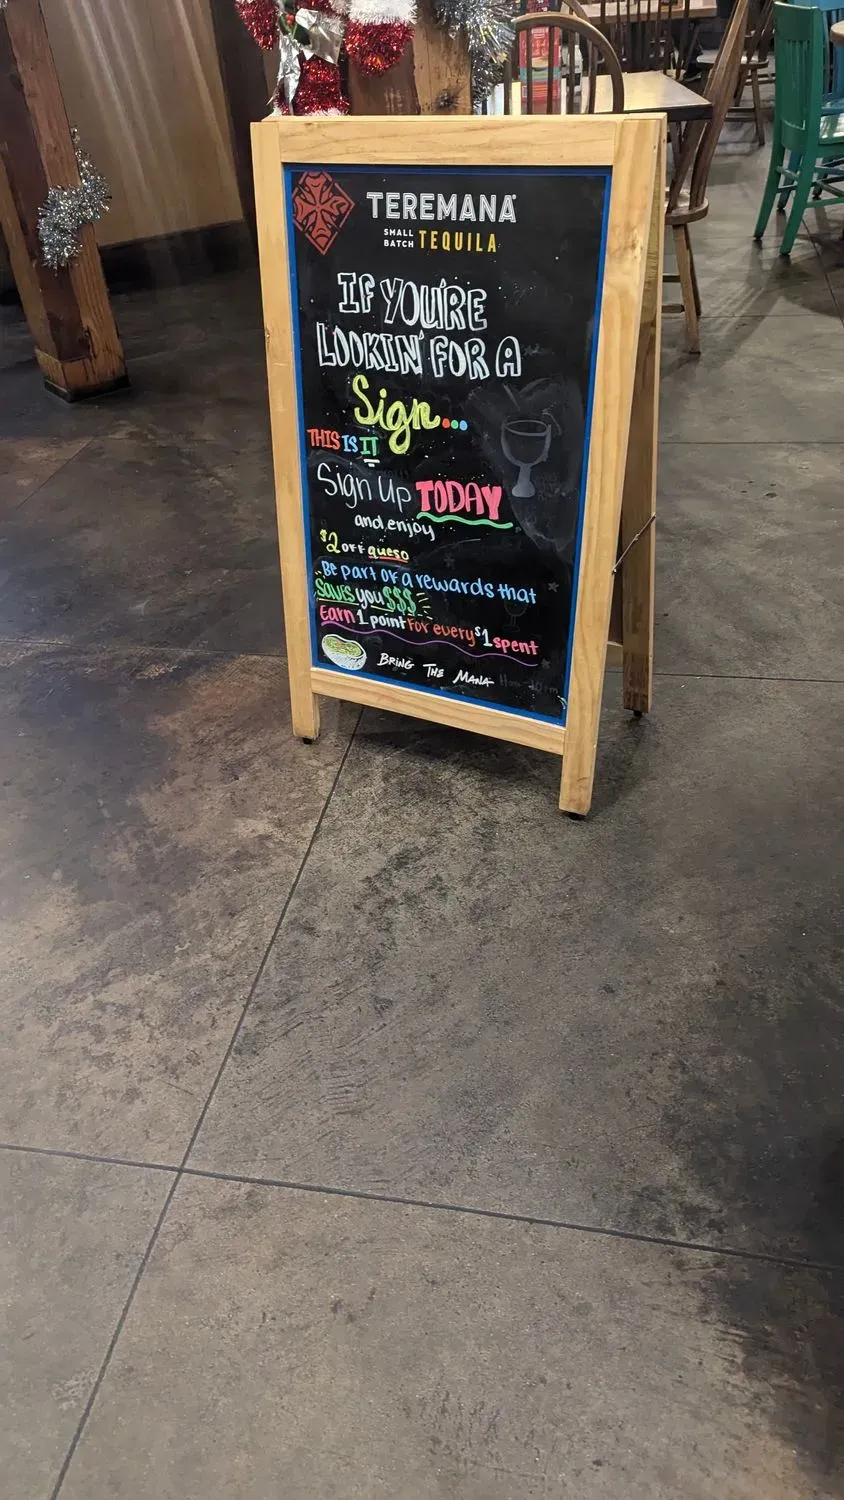 TEREMANA
SMALL BATCH TEQUILA
IF YOU'RE
LOOKIN' FOR A
Sign...
THIS IS IT
Sign Up TODAY
and enjoy
$2 OFF queso
Be part of a rewards that
SAVES you $$$
Earn 1 point For every $1 spent
BRING THE MANA